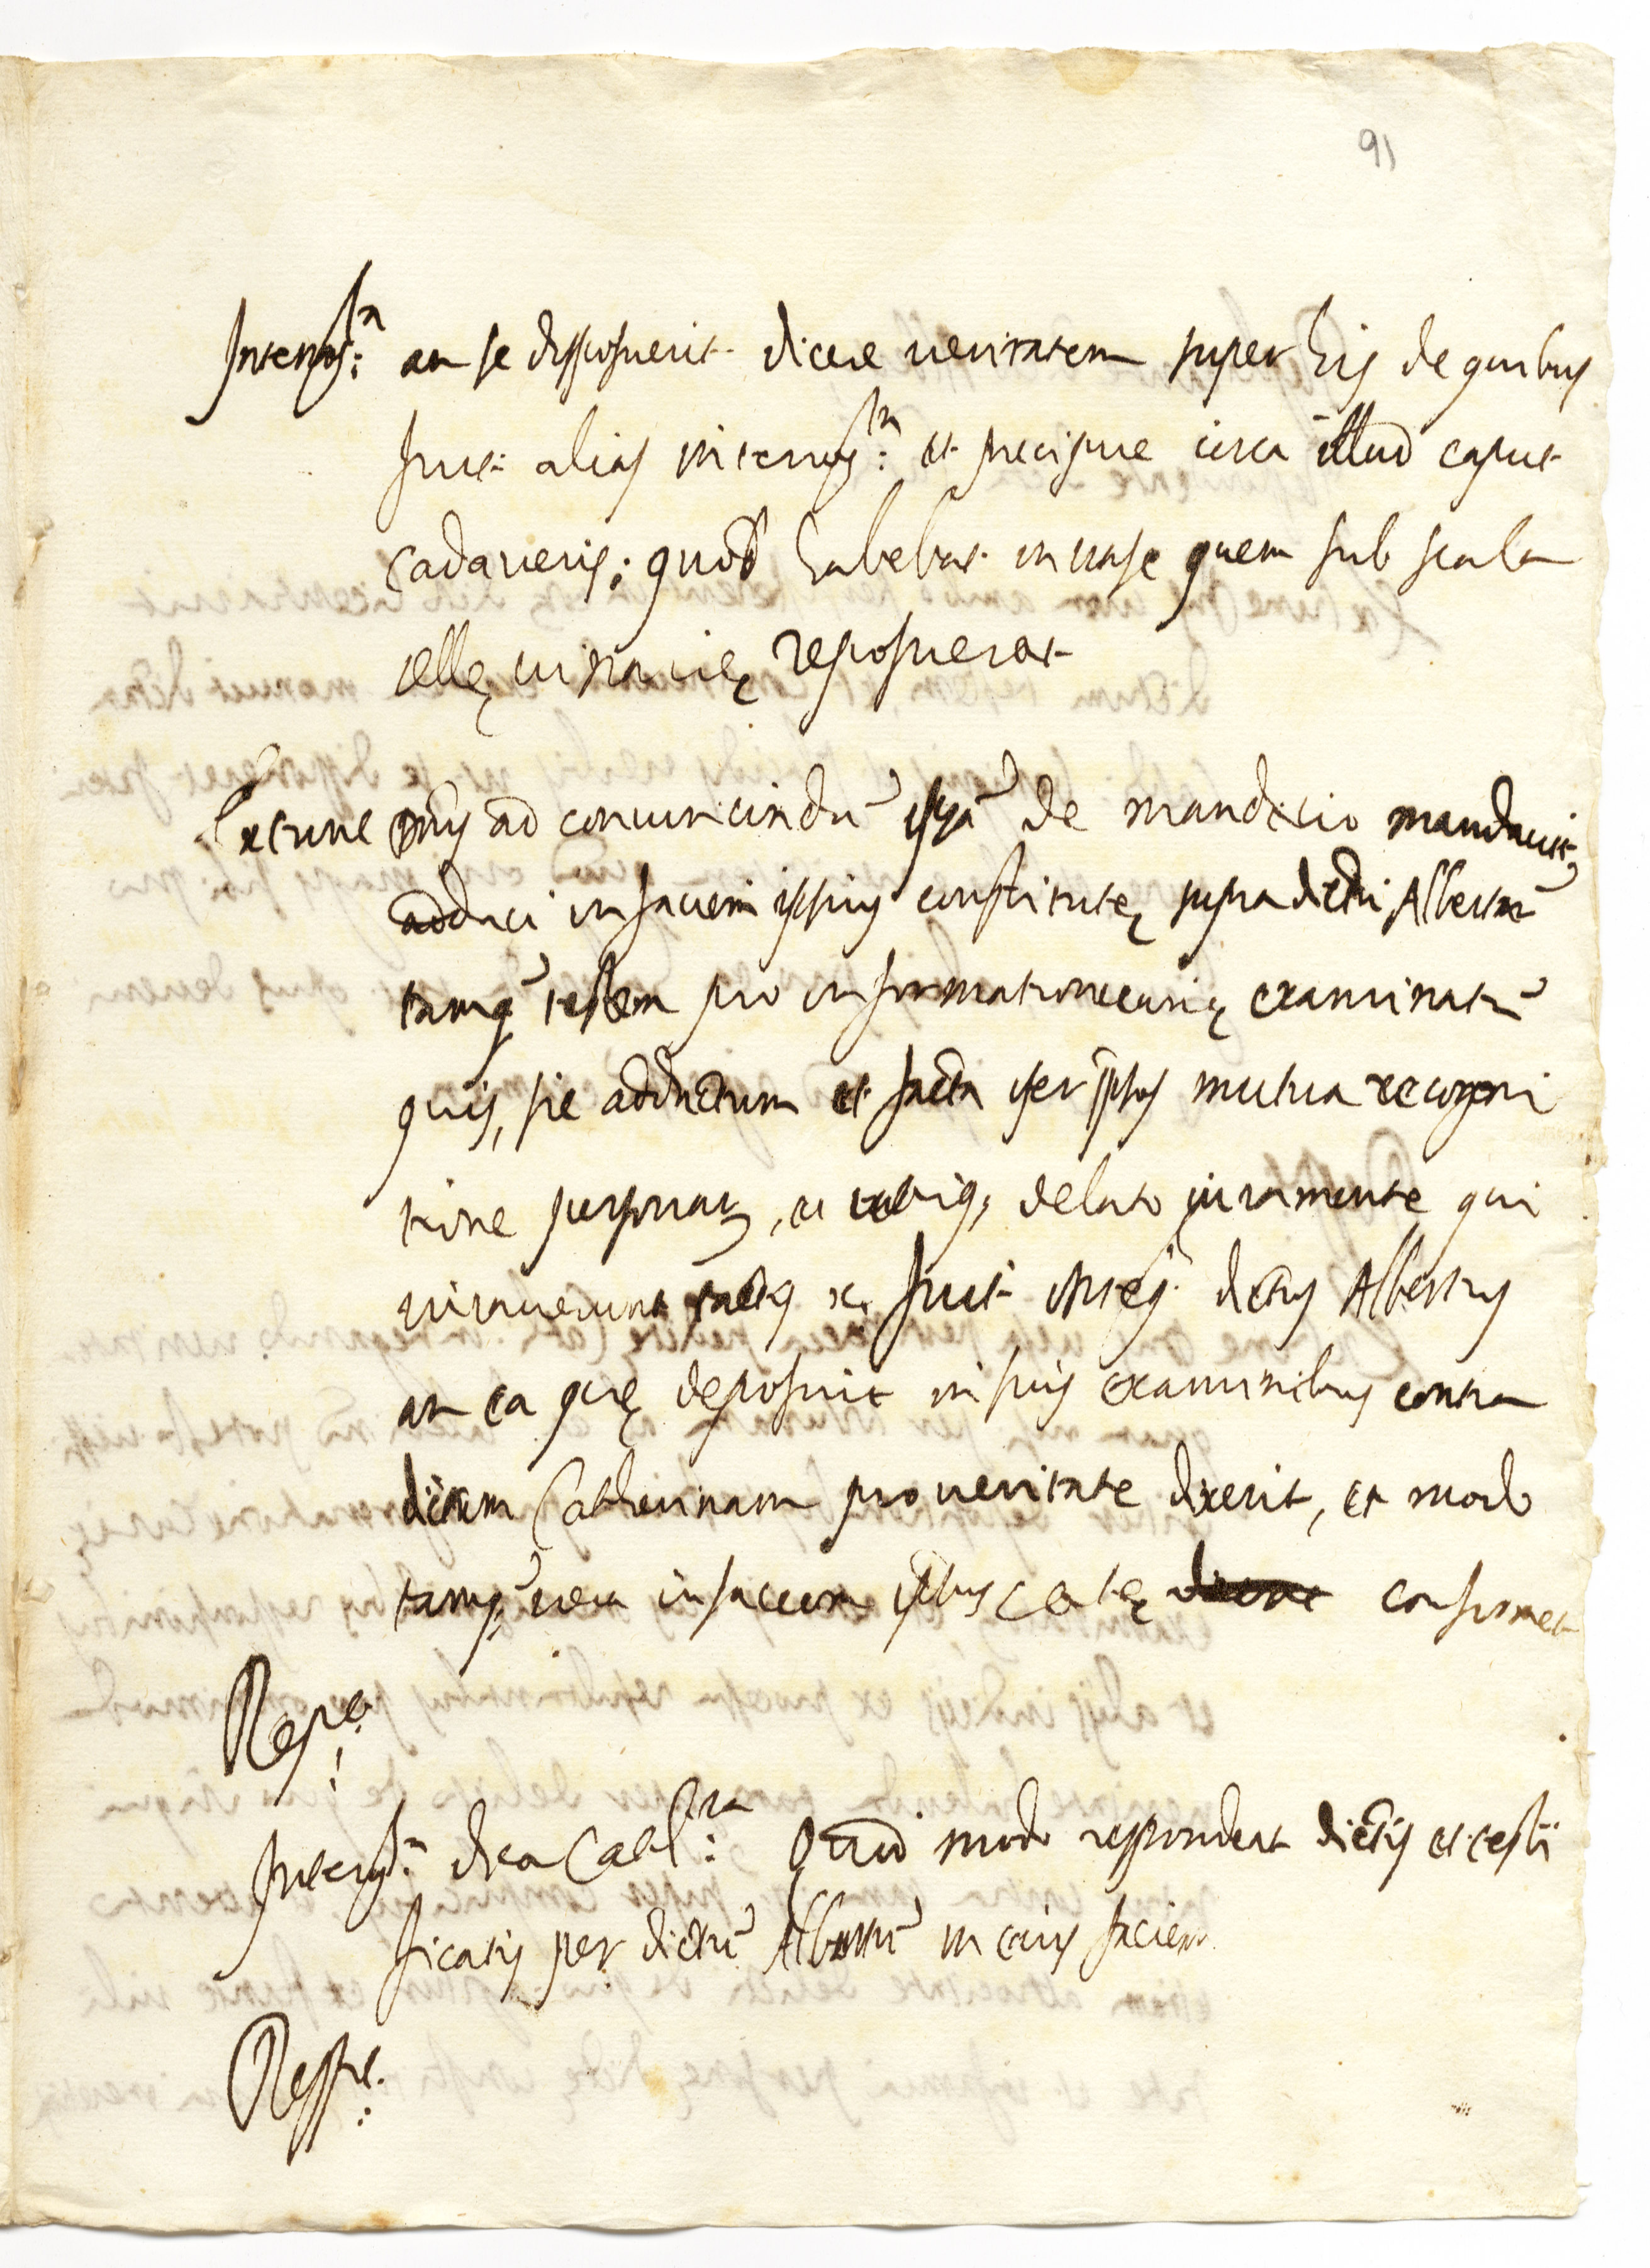 91
Interrog.ta an se disposuerit dicere veritatem super his de quibus
fuit alias interrog.ta et precipue circa illud caput
cadaveris; quod habebat in vase quem sub scala
cellę vinarię reposuerat
Et tunc Dns ad convincindũ ipsã de mendacio mandavit
adduci in faciem ipsius constitutę supradictũ Albertũ
tamq̃ testem pro informatione curię examinatũ
quis, sic adductum et facta per ipsos mutua recogni
tione personarũ, et utriq; delato iuramento qui
iuraverunt tactis xc fuit Interg. dictus Albertus
an ea quę deposuit in suis examinibus contra
dictam Catherinam pro veritate dixerit, et modo
tamq̃ vera in faciem ipsius Catę confirmet
Respe.
Interg.ta dicta Cath.na Quid modo respondeat dictis et testi
ficatis per dictũ Albertũ in eius faciem
Respe.